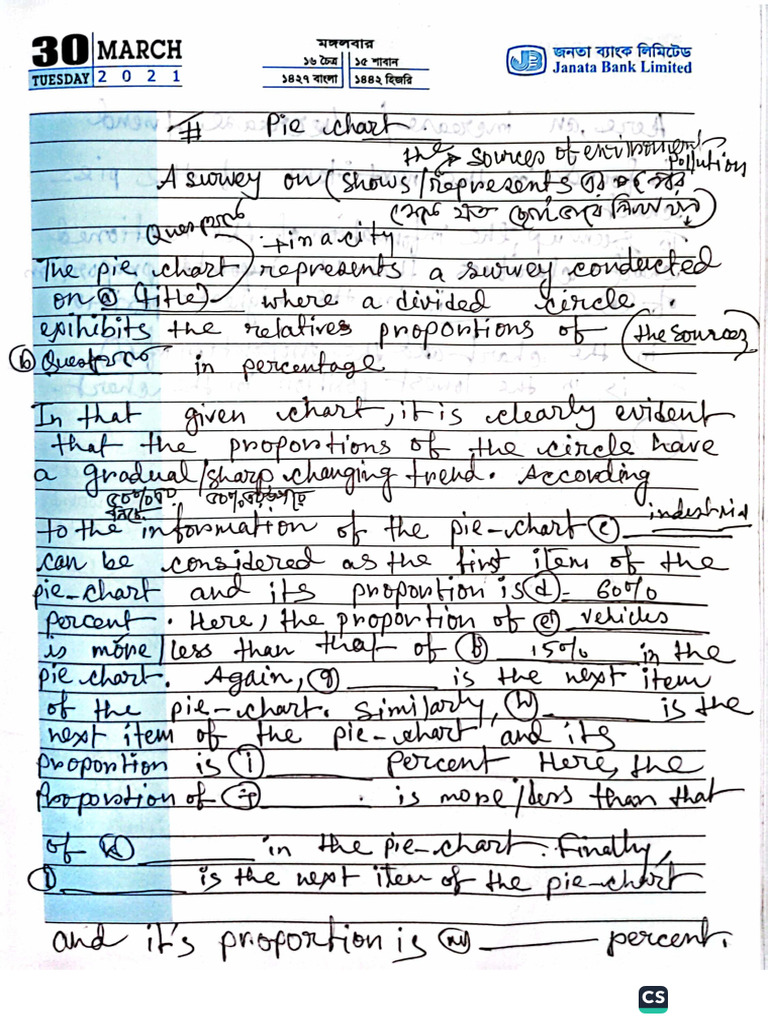 30 MARCH
TUESDAY 2 0 2 1
মঙ্গলবার
১৬ চৈত্র ১৫ শাবান
১৪২৭ বাংলা ১৪৪২ হিজরি
জনতা ব্যাংক লিমিটেড
Janata Bank Limited
# Pie chart
the → sources of environment pollution
A survey on (shows/represents এর
→ in a city
The pie chart represents a survey conducted
on ⓐ (title) where a divided circle
exihibits the relatives proportions of (the sources)
ⓑ in percentage
In that given chart, it is clearly evident
that the proportions of the circle have
a gradual/sharp changing trend. According
to the information of the pie-chart ⓒ industrial
can be considered as the first item of the
pie-chart and its proportion is ⓓ 60%
percent. Here, the proportion of ⓔ vehicles
is more/less than that of ⓕ 15% in the
pie chart. Again, ⓖ ______ is the next item
of the pie-chart. Similarly, ⓗ ______ is the
next item of the pie-chart and its
proportion is ⓘ ______ percent Here, the
proportion of ⓙ ______. is more/less than that
of ⓚ ______ in the pie-chart. Finally,
ⓛ ______ is the next item of the pie-chart
and it's proportion is ⓜ ______ percent.
CS